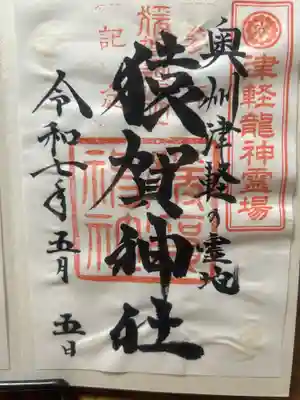 津軽龍神霊場
奥州津軽の霊地
猿賀神社
令和七年五月五日